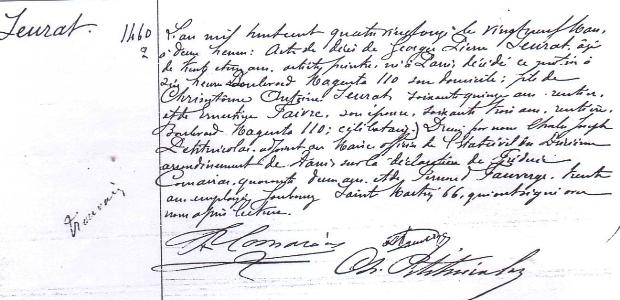 Seurat. 1460
2
L'an mil huit cent quatre vingt onze le vingt neuf Mars
à deux heures : Acte de décès de Georges Pierre Seurat, âgé
de trente et un ans, artiste peintre, né à Paris, décédé ce matin à
six heures Boulevard Magenta 110 son domicile ; fils de
Chrisostome Antoine Seurat, soixante quinze ans, rentier,
et de Ernestine Faivre, son épouse, soixante trois ans, rentière,
boulevard Magenta 110 ; célibataire.) Dressé par nous Charles Joseph
Petitnicolas, adjoint au Maire, officier de l'état civil du Dixième
arrondissement de Paris sur la déclaration de
Comarias, quarante deux ans, et de Fernand Fauverge, trente
ans, employés, faubourg Saint Martin 66, qui ont signé avec
nous après lecture.
Comarias
Ch. Petitnicolas